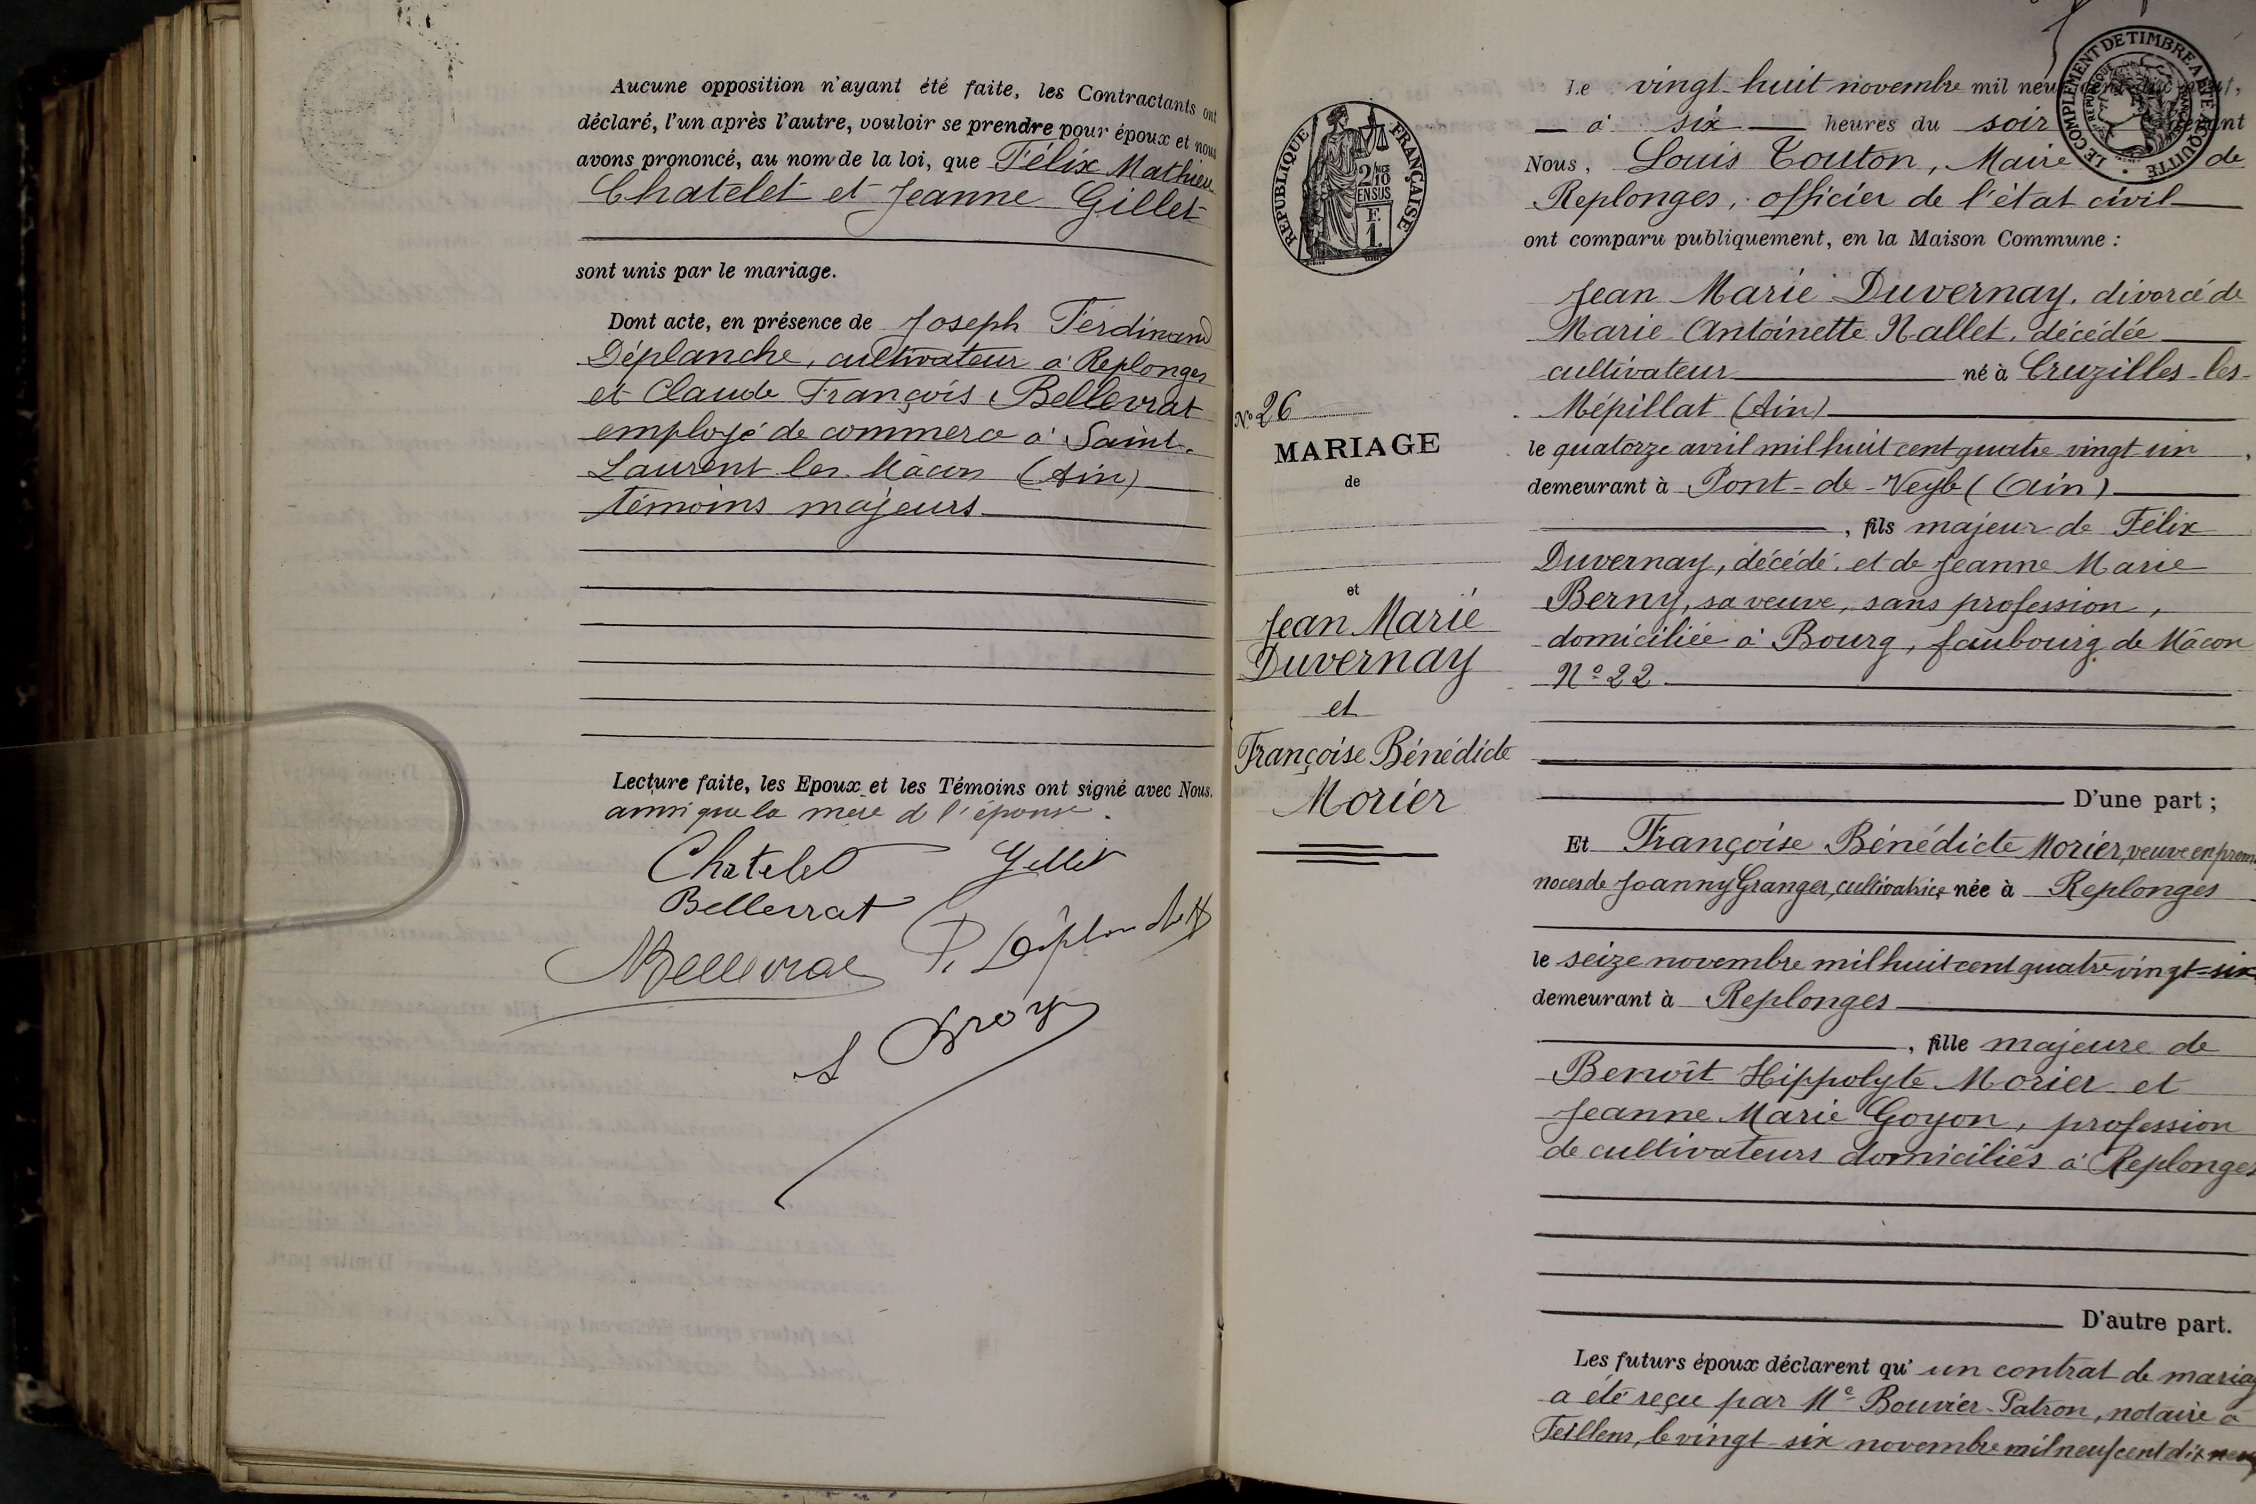 Aucune opposition n'ayant été faite, les Contractants ont
déclaré, l'un après l'autre, vouloir se prendre pour époux et nous
avons prononcé, au nom de la loi, que Félix Mathieu
Chatelet et Jeanne Gillet
sont unis par le mariage.
Dont acte, en présence de Joseph Ferdinand
Déplanche, cultivateur à Replonges
et Claude François Bellevrat
employé de commerce à Saint-
Laurent les Mâcon (Ain)
témoins majeurs
Lecture faite, les Epoux et les Témoins ont signé avec Nous.
ainsi que la mère de l'épouse.
Chatelet Gillet
Bellevrat
RÉPUBLIQUE FRANÇAISE
2/10
EN SUS
F.
1.
No 26
MARIAGE
de
et
Jean Marie
Duvernay
et
Françoise Bénédicte
Morier
LE COMPLÉMENT DE TIMBRE A ÉTÉ ACQUITTÉ
Le vingt-huit novembre mil neuf cent dix neuf,
à six heures du soir devant
Nous, Louis Touton, Maire de
Replonges, officier de l'état civil
ont comparu publiquement, en la Maison Commune :
Jean Marie Duvernay, divorcé de
Marie Antoinette Nallet, décédée
cultivateur né à Cruzilles-les-
Mépillat (Ain)
le quatorze avril mil huit cent quatre vingt un,
demeurant à Pont-de-Veyle (Ain)
, fils majeur de Félix
Duvernay, décédé, et de Jeanne Marie
Berny, sa veuve, sans profession,
domiciliée à Bourg, faubourg de Mâcon
No 22
D'une part ;
Et Françoise Bénédicte Morier, veuve en prem.
noces de Joanny Granger, cultivatrice née à Replonges
le seize novembre mil huit cent quatre vingt-six
demeurant à Replonges
, fille majeure de
Benoît Hippolyte Morier et
Jeanne Marie Goyon, profession
de cultivateurs domiciliés à Replonges
D'autre part.
Les futurs époux déclarent qu' un contrat de mariag
a été reçu par Me Bouvier-Patron, notaire à
Feillens, le vingt-six novembre mil neuf cent dix neuf